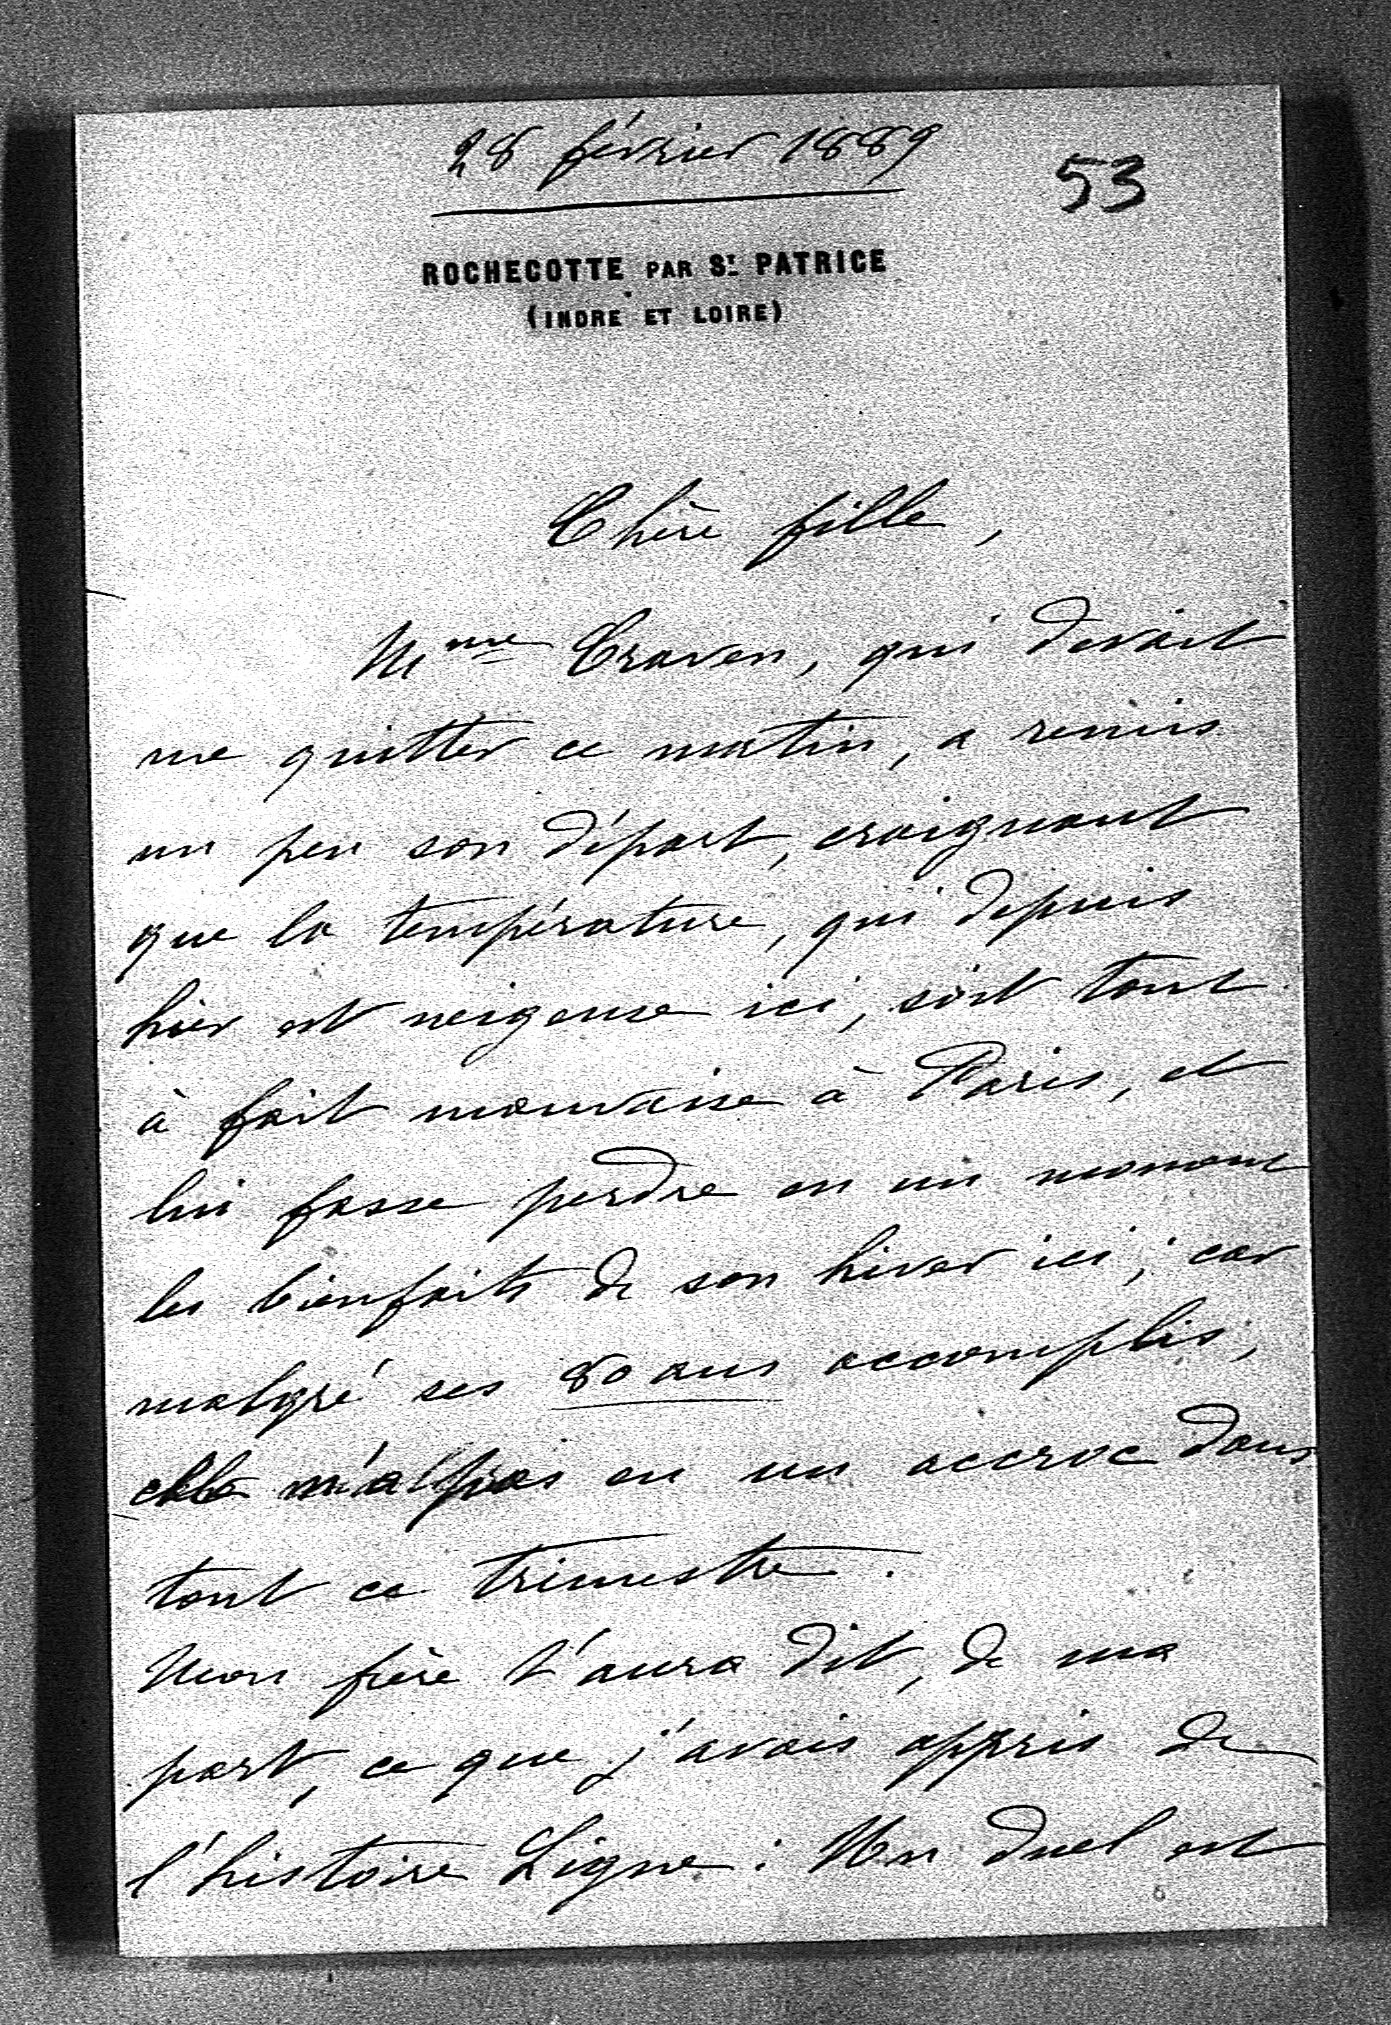 28 février 1889
53
ROCHECOTTE PAR ST. PATRICE
(INDRE ET LOIRE)
Chère fille,
Mme Craven, qui devait
me quitter ce matin, a remis
un peu son départ, craignant
que la température, qui depuis
hier est neigeuse ici, soit tout
à fait mauvaise à Paris, et
lui fasse perdre en un moment
les bienfaits de son hiver ici; car
malgré ses 80 ans accomplis,
elle n'a pas eu un accroc dans
tout ce trimestre.
Mon frère t'aura dit, de ma
part, ce que j'avais appris de
l'histoire Ligne. Un duel est